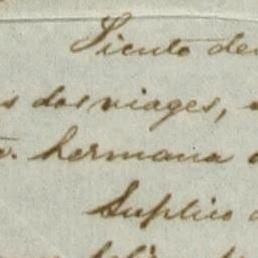 Siento de
s dos viages,
hermana
Suplico